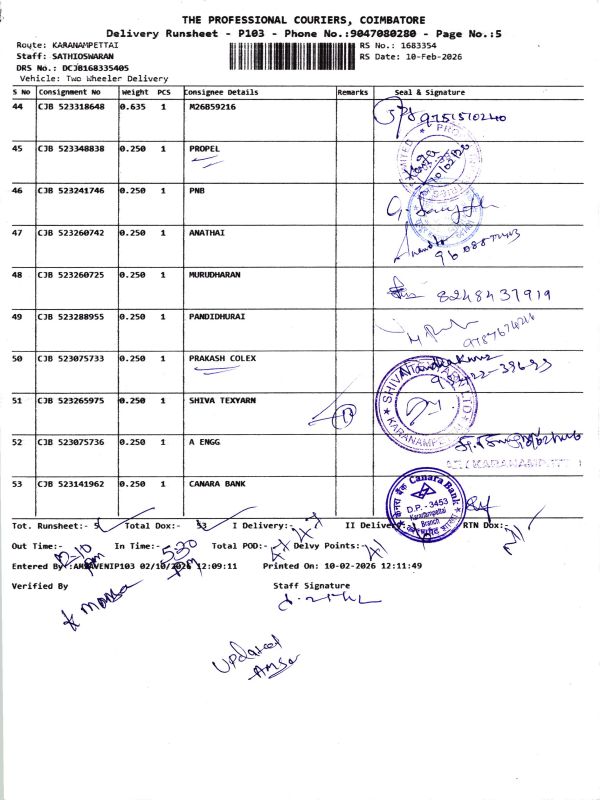 THE PROFESSIONAL COURIERS, COIMBATORE
Delivery Runsheet - P103 - Phone No.:9047080280 - Page No.:5
Route: KARANAMPETTAI
RS No.: 1683354
Staff: SATHIOSWARAN
RS Date: 10-Feb-2026
DRS No.: DCJB168335405
Vehicle: Two Wheeler Delivery
S No Consignment No Weight PCS Consignee Details Remarks Seal & Signature
44 CJB 523318648 0.635 1 M26859216
9751510240
45 CJB 523348838 0.250 1 PROPEL
46 CJB 523241746 0.250 1 PNB
47 CJB 523260742 0.250 1 ANATHAI
48 CJB 523260725 0.250 1 MURUDHARAN
8248437919
49 CJB 523288955 0.250 1 PANDIDHURAI
50 CJB 523075733 0.250 1 PRAKASH COLEX
51 CJB 523265975 0.250 1 SHIVA TEXYARN
52 CJB 523075736 0.250 1 A ENGG
53 CJB 523141962 0.250 1 CANARA BANK
Canara Bank
D.P.- 3453
Karanampettai
Branch
Tot. Runsheet:- 5 Total Dox:- 53 I Delivery:- 47 II Delivery:- RTN Dox:-
Out Time:- 12-10 pm In Time:- 5-30 pm Total POD:- Delvy Points:- 41
Entered By :AMSAVENIP103 02/10/2026 12:09:11 Printed On: 10-02-2026 12:11:49
Verified By Staff Signature
Updated
Amsa